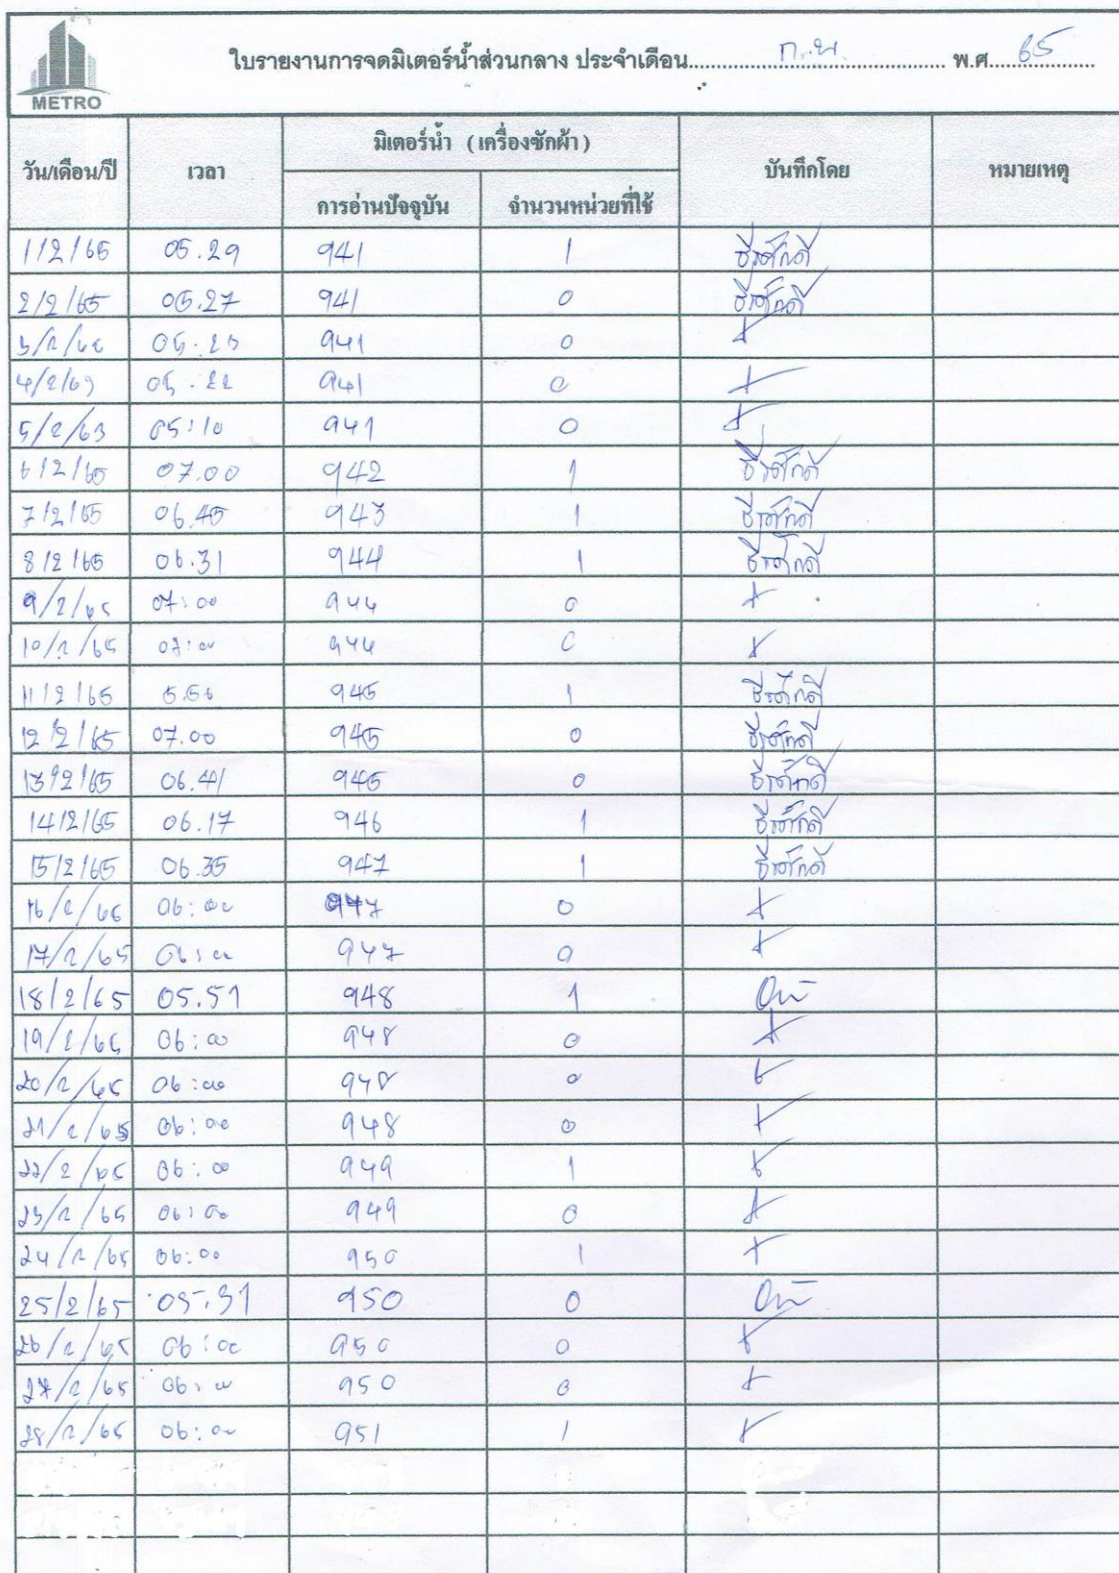 METRO
ใบรายงานการจดมิเตอร์น้ำส่วนกลาง ประจำเดือน ก.พ. พ.ศ. 65
วัน/เดือน/ปี เวลา มิเตอร์น้ำ (เครื่องซักผ้า) บันทึกโดย หมายเหตุ
การอ่านปัจจุบัน จำนวนหน่วยที่ใช้
1/2/65 05.29 941 1 ธีรศักดิ์
2/2/65 05.27 941 0 ธีรศักดิ์
3/2/65 941 0
4/2/65 05.22 941 0
5/2/63 05:10 941 0
6/2/65 07.00 942 1 ธีรศักดิ์
7/2/65 06.45 943 1 ธีรศักดิ์
8/2/65 06.31 944 1 ธีรศักดิ์
9/2/65 07:00 944 0
10/2/65 07:00 944 0
11/2/65 5.56 945 1 ธีรศักดิ์
12/2/65 07.00 945 0 ธีรศักดิ์
13/2/65 06.41 945 0 ธีรศักดิ์
14/2/65 06.17 946 1 ธีรศักดิ์
15/2/65 06.35 947 1 ธีรศักดิ์
16/2/65 06:00 947 0
17/2/65 06:00 947 0
18/2/65 05.51 948 1
19/2/65 06:00 948 0
20/2/65 06:00 948 0
21/2/65 06:00 948 0
22/2/65 06:00 949 1
23/2/65 06:00 949 0
24/2/65 06:00 950 1
25/2/65 05.31 950 0
26/2/65 06:00 950 0
27/2/65 06:00 950 0
28/2/65 06:00 951 1